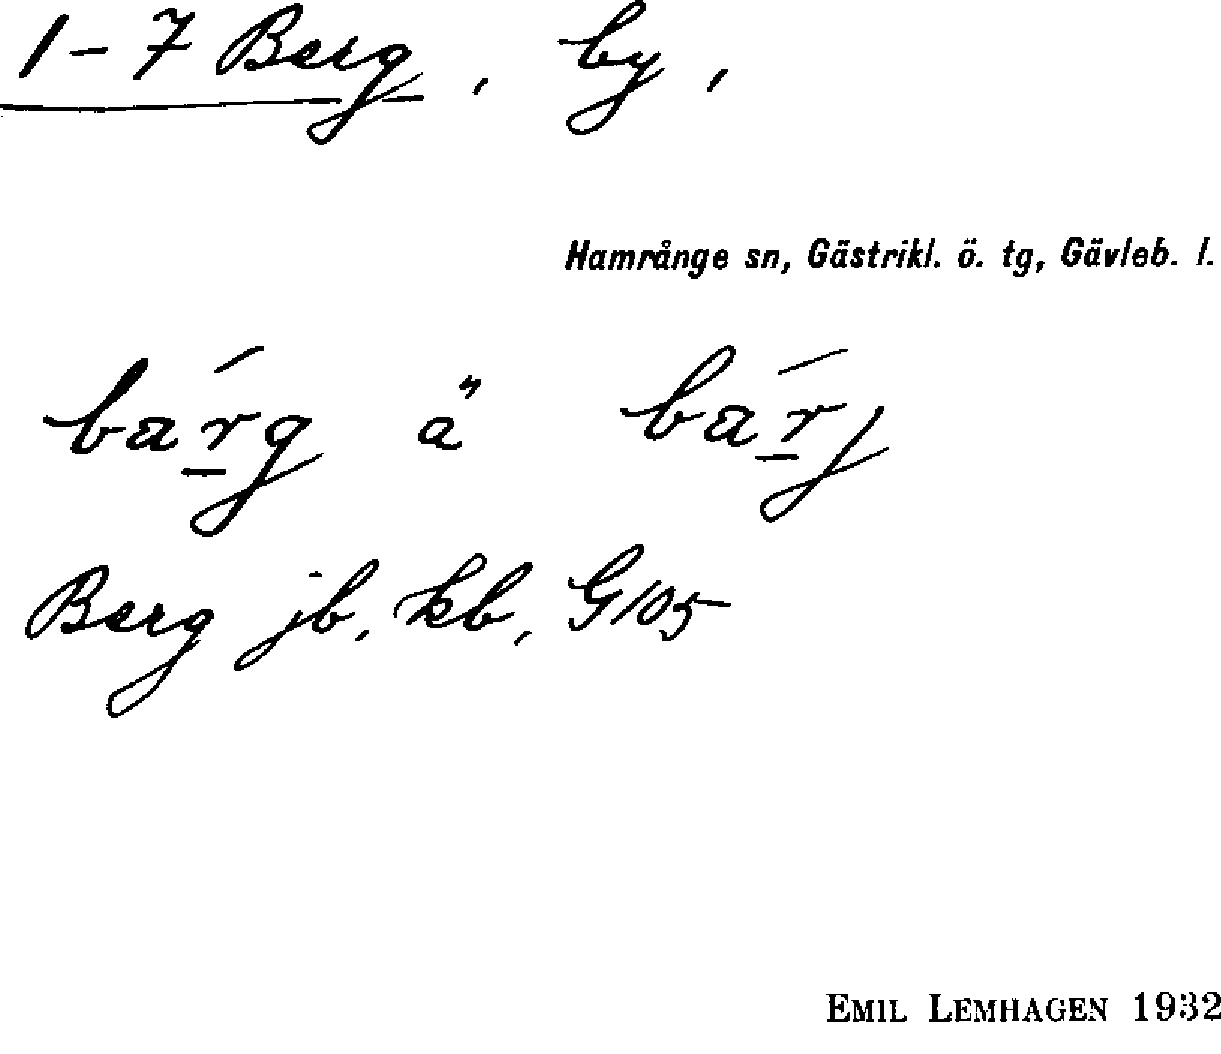 1-7 Berg, by,
Hamrånge sn, Gästrikl. ö. tg, Gävleb. l.
bárg ä bárj
Berg jb, kb, G105
EMIL LEMHAGEN 1932